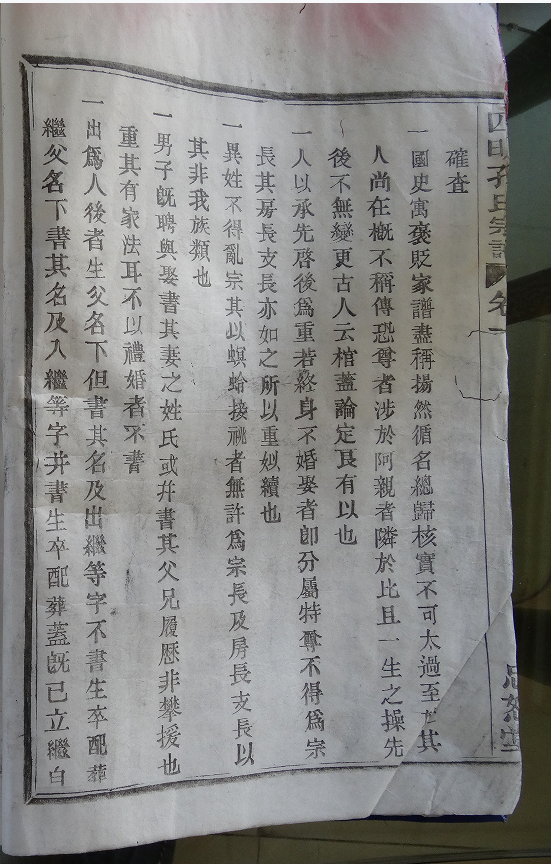 四明孔氏宗譜 卷一
忠恕堂
確查
一國史寓褒貶家譜盡稱揚然循名總歸核實不可太過至於其
人尚在槪不稱傳恐尊者涉於阿親者隣於比且一生之操先
後不無變更古人云棺蓋論定良有以也
一人以承先啓後爲重若終身不婚娶者卽分屬特尊不得爲宗
長其房長支長亦如之所以重姒續也
一異姓不得亂宗其以螟蛉接祧者無許爲宗長及房長支長以
其非我族類也
一男子旣聘與娶書其妻之姓氏或幷書其父兄履歷非攀援也
重其有家法耳不以禮婚者不書
一出爲人後者生父名下但書其名及出繼等字不書生卒配葬
繼父名下書其名及入繼等字幷書生卒配葬蓋旣已立繼自